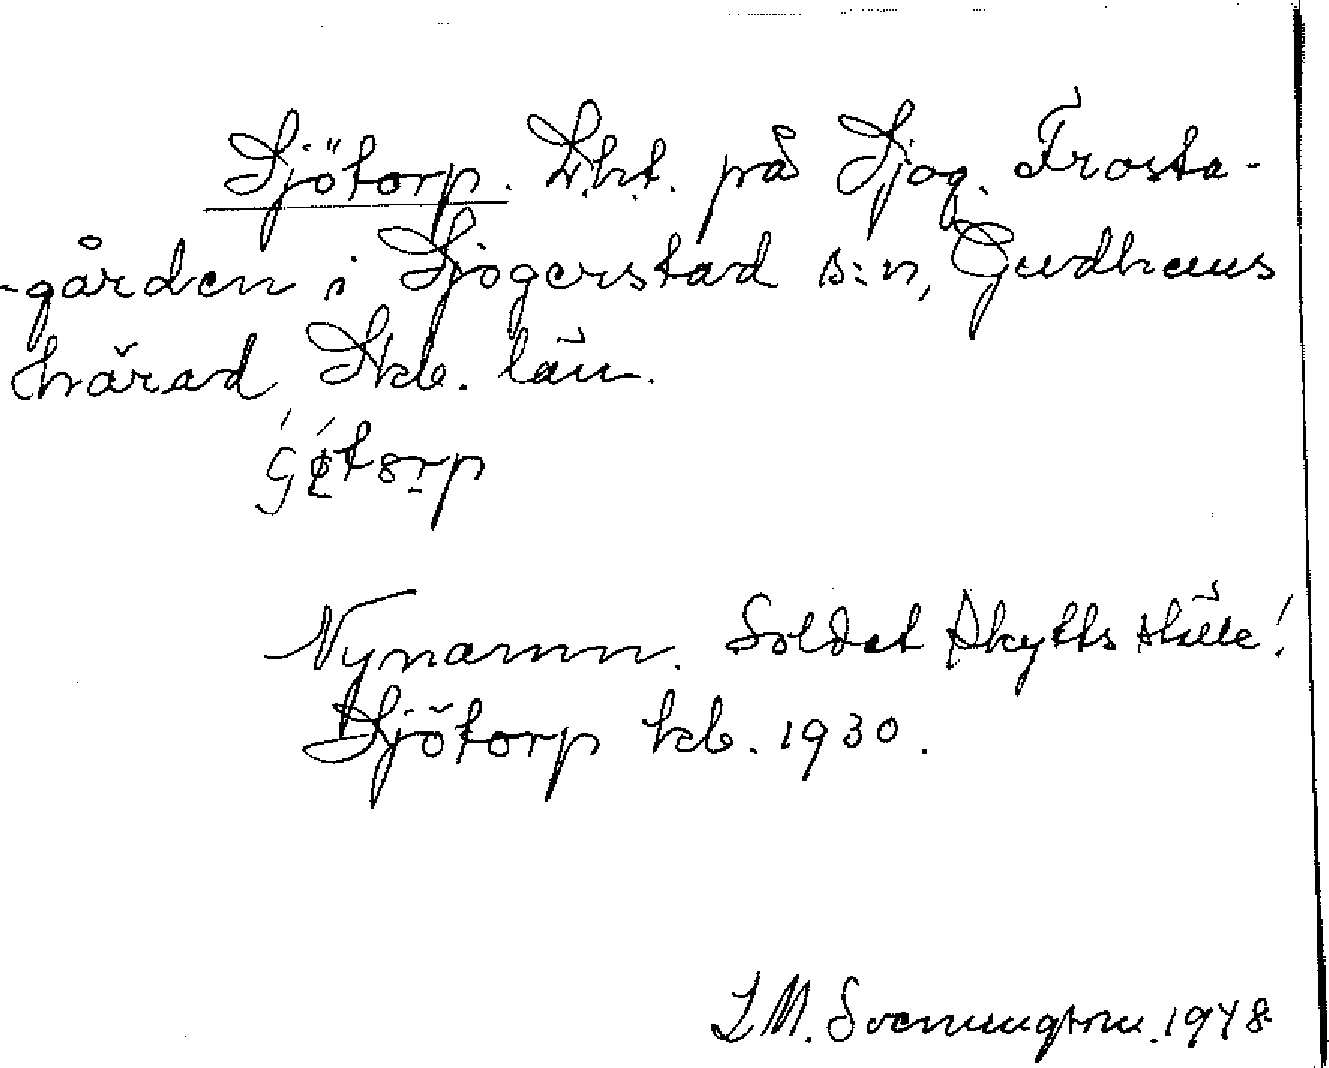 Sjötorp. Lht. på Sjog. Frosta-
-gården i Sjogerstad s:n, Gudhems
härad Skb. län.
Nynamn. Soldat Skytts ställe!
Sjötorp kb. 1930.
L M. Svenungsson. 1948